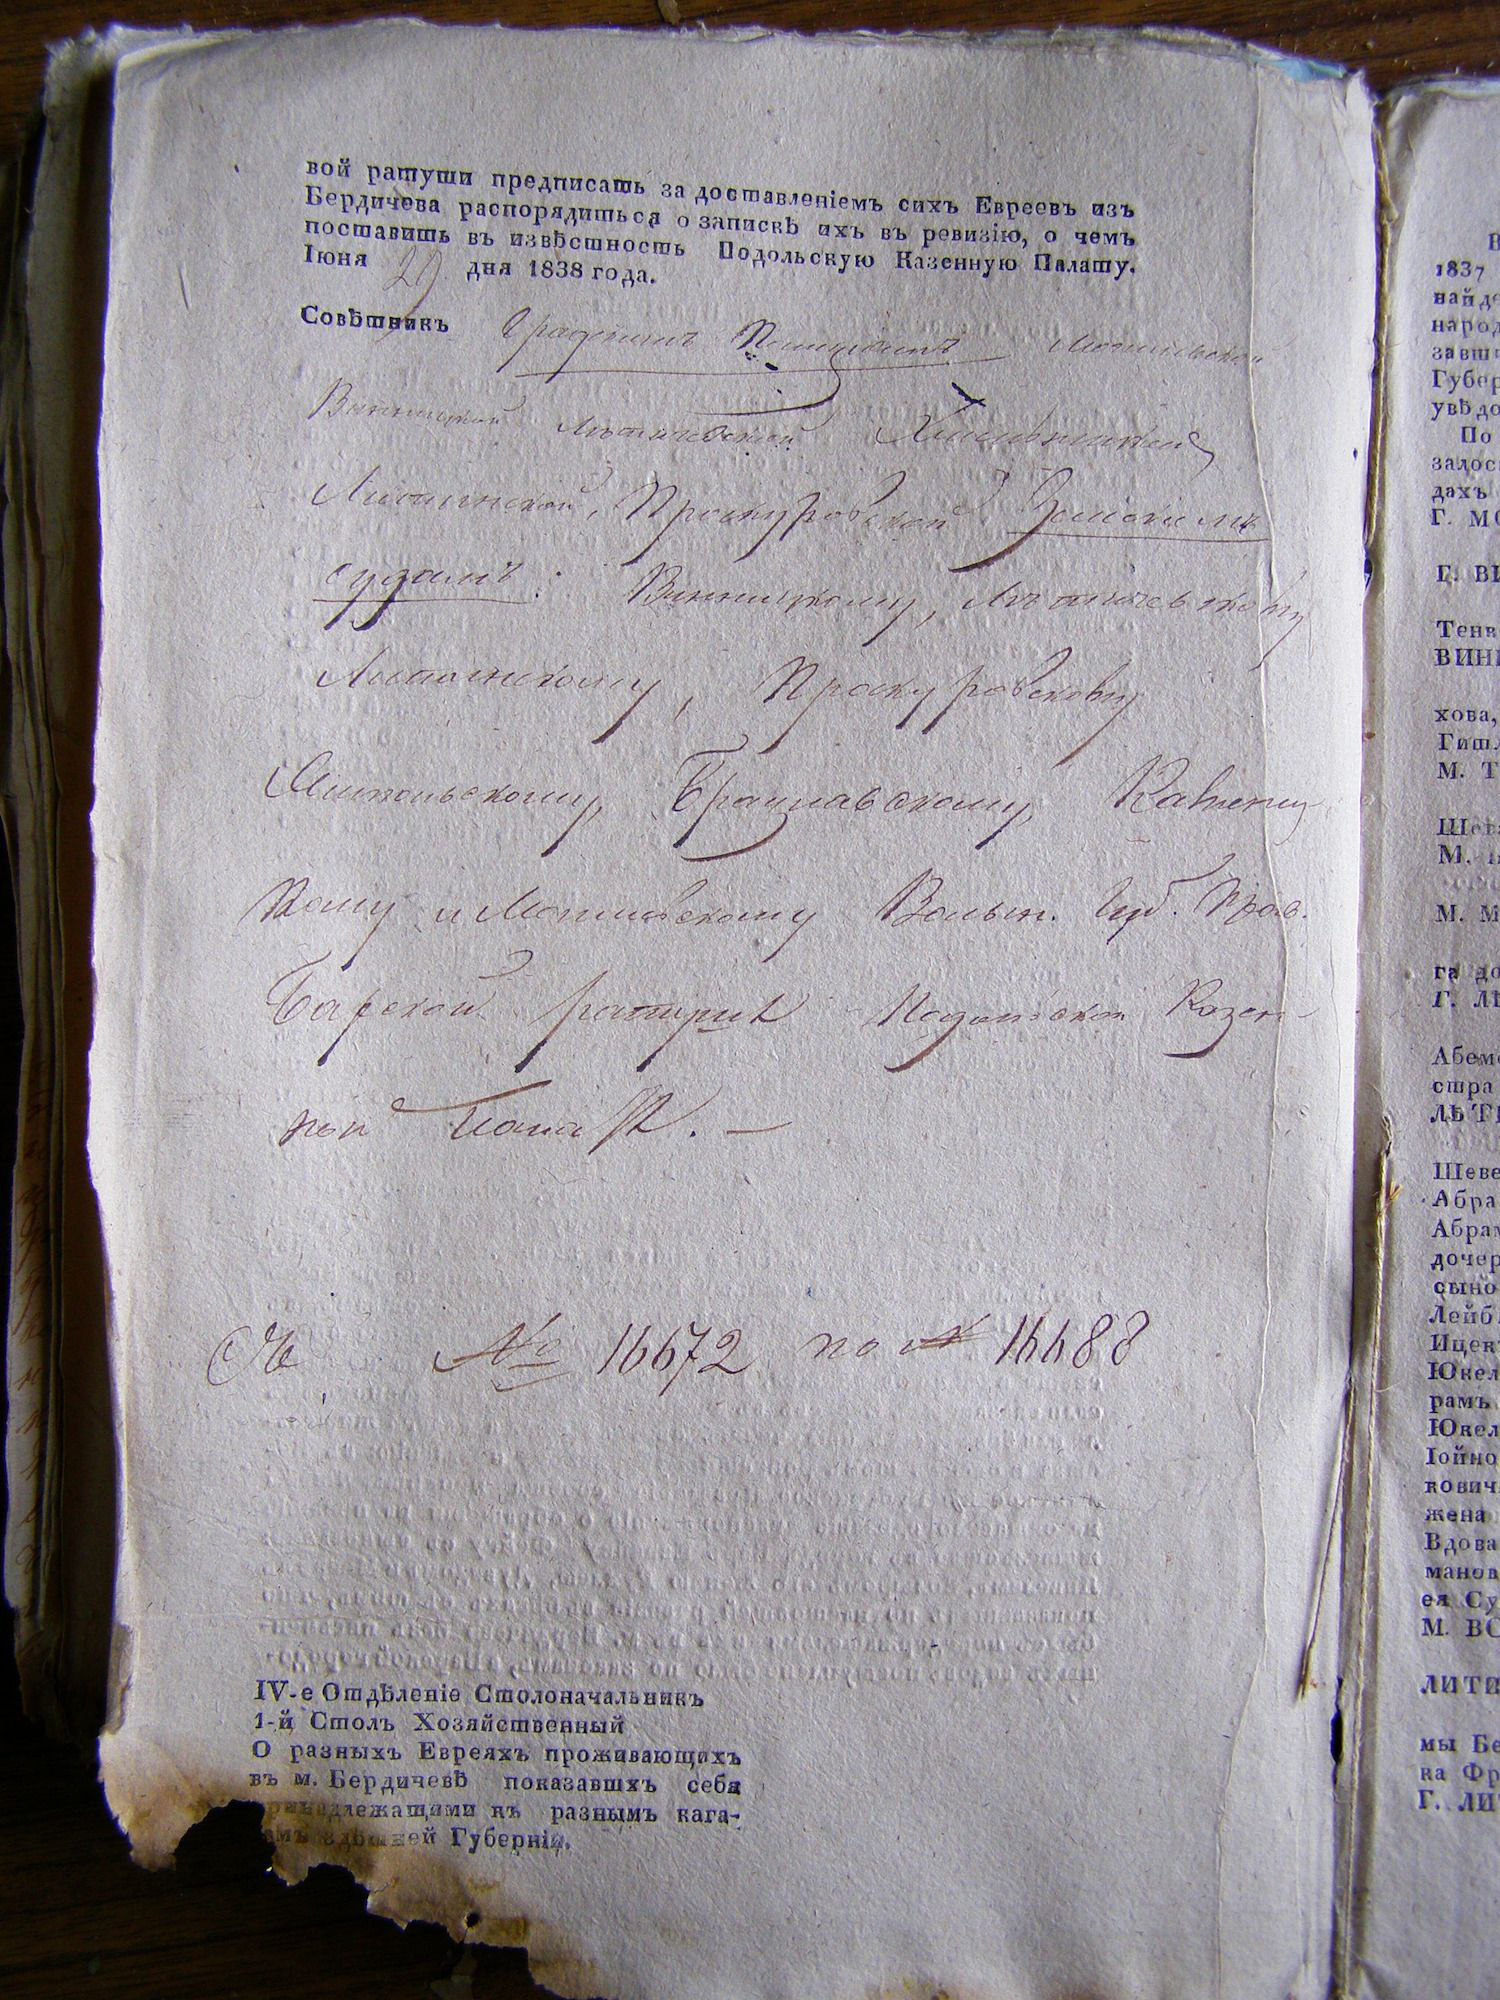 вой ратуши предписать за доставленіемъ сихъ Евреевъ изъ
Бердичева распорядиться о запискѣ ихъ въ ревизію, о чемъ
поставить въ извѣстность Подольскую Казенную Палату.
Іюня 29 дня 1838 года.
Совѣтникъ Градскимъ Полиціямъ Могилевской
Винницкой Лѣтичевской Хмельницкой
Литинской, Проскуровской Земскимъ
судамъ: Винницкому, Лѣтичевскому
Литинскому, Проскуровскому
Ямпольскому, Брацлавскому, Каменец
кому и Могилевскому Волын. Губ. Прав.
Барской ратуши Подольской Казен-
ной Палатѣ. —
Съ № 16672 по № 16688
IV-е Отдѣленіе Столоначальникъ
1-й Столъ Хозяйственный
О разныхъ Евреяхъ проживающихъ
въ м. Бердичевѣ показавшхъ себя
ринадлежащими къ разнымъ кага-
амъ здѣшней Губерніи.
1837
найде
народ
завш
Губер
увѣдо
По
залос
дахъ
Г. МО
Г. ВИ
Тенв
ВИНН
хова,
Гитл
М. Т
М. М
га до
Г. ЛѢ
Абемо
стра
ЛѢТИ
Шеве
Абра
Абрам
дочер
сыно
Лейб
Ицек
Юкел
рамъ
Юкел
Іойно
кович
жена
Вдова
манов
ея Су
М. ВО
ЛИТИ
мы Бе
ка Фр
Г. ЛИ